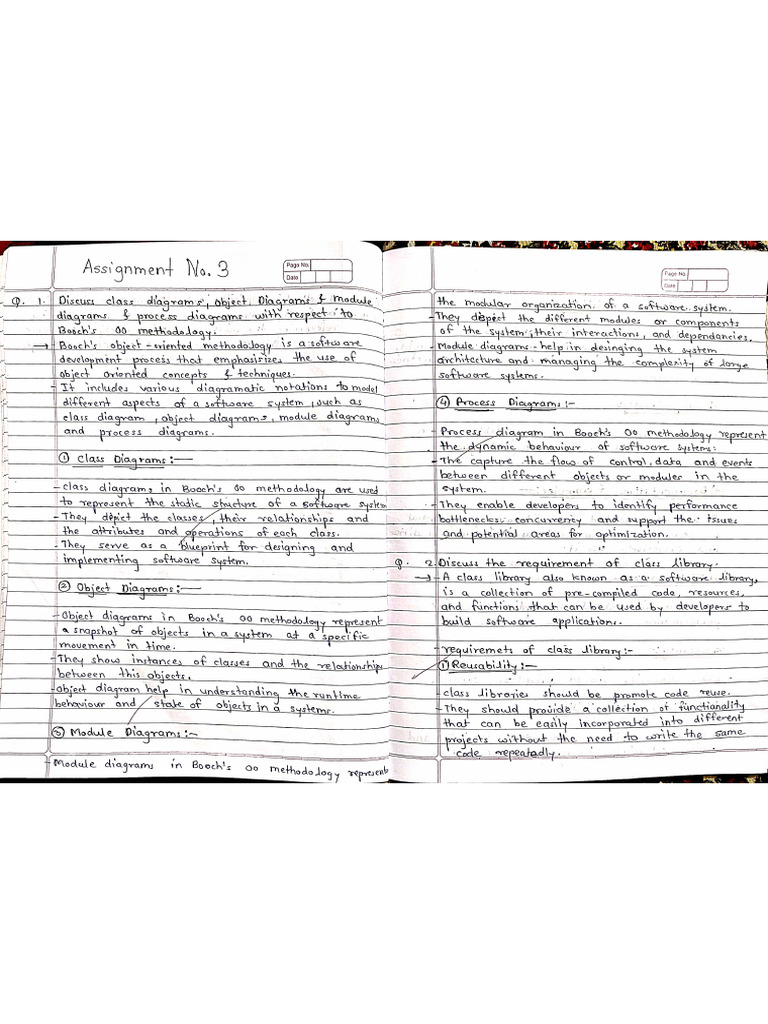 Assignment No. 3
Page No.
Date
Q. 1. Discuss class diagrams, object. Diagrams & module
diagrams & process diagrams with respect to
Booch's OO methodology.
→ Booch's object-oriented methodology is a software
development process that emphasisizes the use of
object oriented concepts & techniques.
- It includes various diagramatic notations to model
different aspects of a software system, such as
class diagram, object diagrams, module diagrams
and process diagrams.
① Class Diagrams:-
- class diagrams in Booch's OO methodology are used
to represent the static structure of a software system
- They depict the classes, their relationships and
the attributes and operations of each class.
- They serve as a blueprint for designing and
implementing software system.
② Object Diagrams:-
- Object diagrams in Booch's OO methodology represent
a snapshot of objects in a system at a specific
movement in time.
- They show instances of classes and the relationships
between this objects.
- object diagram help in understanding the runtime
behaviour and state of objects in a systems.
③ Module Diagrams:-
- Module diagrams in Booch's OO methodology represent
Page No.
Date
the modular organization of a software system.
- They depict the different modules or components
of the system, their interactions, and dependancies.
- Module diagrams help in desinging the system
architecture and managing the complexity of large
software systems.
④ Process Diagrams:-
Process diagram in Booch's OO methodology represent
the dynamic behaviour of software systems:
- The capture the flow of control, data and events
between different objects or modules in the
system.
- They enable developers to identify performance
bottlenecks, concurrency and support the issues
and potential areas for optimization.
Q. 2. Discuss the requirement of class library.
→ A class library also known as a software library,
is a collection of pre-compiled code, resources,
and functions that can be used by developers to
build software applications.
- requiremets of class library:-
① Reusability:-
- class libraries should be promote code reuse.
- They should provide a collection of functionality
that can be easily incorporated into different
projects without the need to write the same
code repeatadly.